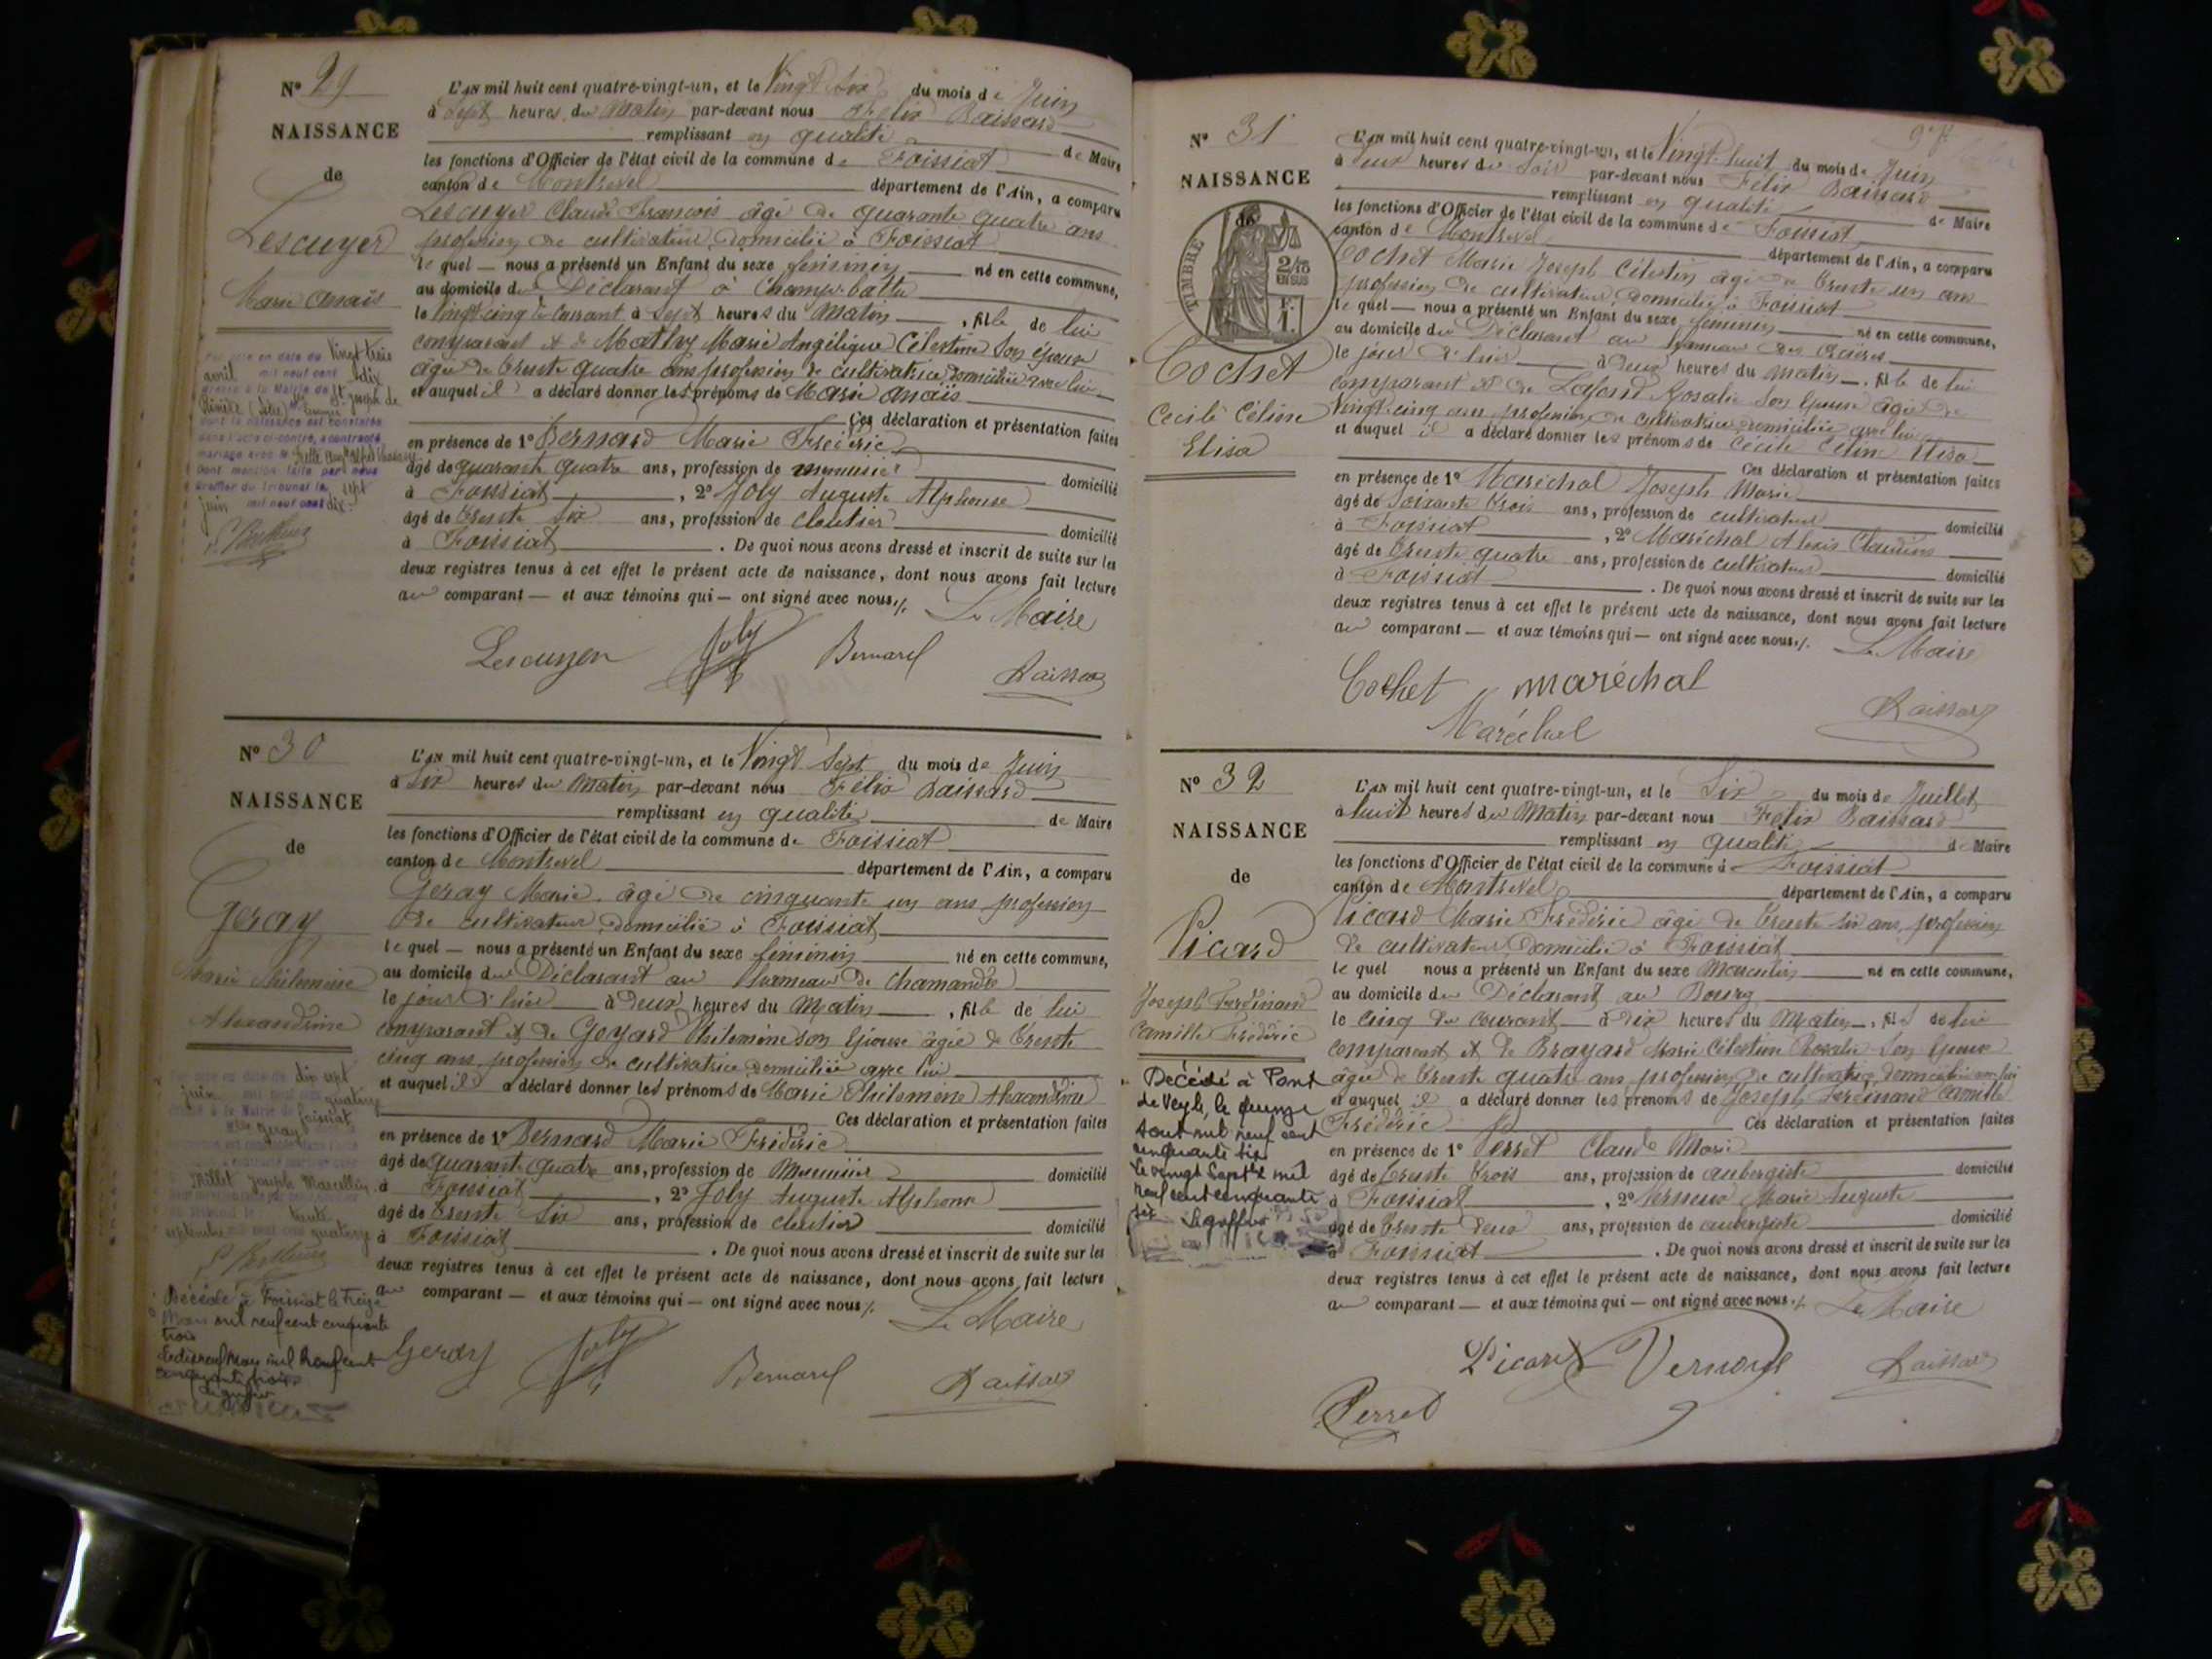 N° 29
NAISSANCE
de
Lescuyer
Marie Anaïs
L'AN mil huit cent quatre-vingt-un, et le Vingt Six du mois de Juin
à Sept heures du Matin par-devant nous Félix Raissard
remplissant en qualité de Maire
les fonctions d'Officier de l'état civil de la commune de Foissiat
canton de Montrevel département de l'Ain, a comparu
Lescuyer Claude François âgé de quarante quatre ans
profession de cultivateur domicilié à Foissiat
le quel — nous a présenté un Enfant du sexe féminin né en cette commune,
au domicile du Déclarant à
le Vingt cinq du Courant à Sept heures du Matin, fille de lui
comparant et de Mathy Marie Angélique Célestine Son épouse
âgée de trente quatre ans profession de cultivatrice domiciliée avec lui
et auquel il a déclaré donner les prénoms de Marie Anaïs
Ces déclaration et présentation faites
en présence de 1° Bernard Marie Frédéric
âgé de quarante quatre ans, profession de menuisier domicilié
à Foissiat, 2° Joly Auguste Alphonse
âgé de trente Six ans, profession de cloutier domicilié
à Foissiat. De quoi nous avons dressé et inscrit de suite sur les
deux registres tenus à cet effet le présent acte de naissance, dont nous avons fait lecture
au comparant — et aux témoins qui — ont signé avec nous./. Le Maire
Lescuyer Joly Bernard Raissard
N° 30
NAISSANCE
de
Geray
Marie Philomène
Alexandrine
Décédée à Foissiat le treize
Mars mil neuf cent cinquante
trois
L'AN mil huit cent quatre-vingt-un, et le Vingt Sept du mois de Juin
à Six heures du Matin par-devant nous Félix Raissard
remplissant en qualité de Maire
les fonctions d'Officier de l'état civil de la commune de Foissiat
canton de Montrevel département de l'Ain, a comparu
Geray Marie âgé de cinquante un ans profession
de cultivateur domicilié à Foissiat
le quel — nous a présenté un Enfant du sexe féminin né en cette commune,
au domicile du Déclarant au hameau de Chamandre
le jour d'hier à deux heures du Matin, fille de lui
comparant et de Goyard Philomène son épouse âgée de trente
cinq ans profession de cultivatrice domiciliée avec lui
et auquel il a déclaré donner les prénoms de Marie Philomène Alexandrine
Ces déclaration et présentation faites
en présence de 1° Bernard Marie Frédéric
âgé de quarante quatre ans, profession de Menuisier domicilié
à Foissiat, 2° Joly Auguste Alphonse
âgé de trente Six ans, profession de cloutier domicilié
à Foissiat. De quoi nous avons dressé et inscrit de suite sur les
deux registres tenus à cet effet le présent acte de naissance, dont nous avons fait lecture
au comparant — et aux témoins qui — ont signé avec nous./. Le Maire
Geray Joly Bernard Raissard
N° 31
NAISSANCE
de
TIMBRE
2/10
EN SUS
F.
1.
Cochet
Cécile Céline
Elisa
L'AN mil huit cent quatre-vingt-un, et le Vingt huit du mois de Juin
à deux heures du Soir par-devant nous Félix Raissard
remplissant en qualité de Maire
les fonctions d'Officier de l'état civil de la commune de Foissiat
canton de Montrevel département de l'Ain, a comparu
Cochet Marie Joseph Célestin âgé de trente un ans
profession de cultivateur domicilié à Foissiat
le quel — nous a présenté un Enfant du sexe féminin né en cette commune,
au domicile du Déclarant au hameau des
le jour d'hier à deux heures du matin, fille de lui
comparant et de Lafond Rosalie Son épouse âgée de
Vingt cinq ans profession de cultivatrice domiciliée avec lui
et auquel il a déclaré donner les prénoms de Cécile Céline Elisa
Ces déclaration et présentation faites
en présence de 1° Maréchal Joseph Marie
âgé de Soixante trois ans, profession de cultivateur domicilié
à Foissiat, 2° Maréchal Alexis Claudius
âgé de trente quatre ans, profession de cultivateur domicilié
à Foissiat. De quoi nous avons dressé et inscrit de suite sur les
deux registres tenus à cet effet le présent acte de naissance, dont nous avons fait lecture
au comparant — et aux témoins qui — ont signé avec nous./. Le Maire
Cochet maréchal
Maréchal Raissard
N° 32
NAISSANCE
de
Picard
Joseph Ferdinand
Camille Frédéric
Décédé à Pont
de Veyle, le quinze
Aout mil neuf cent
cinquante six
Le vingt Sept^bre mil
neuf cent cinquante
six Le greffier
L'AN mil huit cent quatre-vingt-un, et le Six du mois de Juillet
à huit heures du Matin par-devant nous Félix Raissard
remplissant en qualité de Maire
les fonctions d'Officier de l'état civil de la commune de Foissiat
canton de Montrevel département de l'Ain, a comparu
Picard Marie Frédéric âgé de trente six ans, profession
de cultivateur domicilié à Foissiat
le quel nous a présenté un Enfant du sexe Masculin né en cette commune,
au domicile du Déclarant au Bourg
le cinq du courant à dix heures du Matin, fils de lui
comparant et de Brayard Marie Célestine Rosalie Son épouse
âgée de trente quatre ans profession de cultivatrice domiciliée avec lui
et auquel il a déclaré donner les prénoms de Joseph Ferdinand Camille
Frédéric Ces déclaration et présentation faites
en présence de 1° Perret Claude Marie
âgé de trente trois ans, profession de aubergiste domicilié
à Foissiat, 2° Marie Auguste
âgé de trente deux ans, profession de aubergiste domicilié
à Foissiat. De quoi nous avons dressé et inscrit de suite sur les
deux registres tenus à cet effet le présent acte de naissance, dont nous avons fait lecture
au comparant — et aux témoins qui — ont signé avec nous./. Le Maire
Picard Raissard
Perret